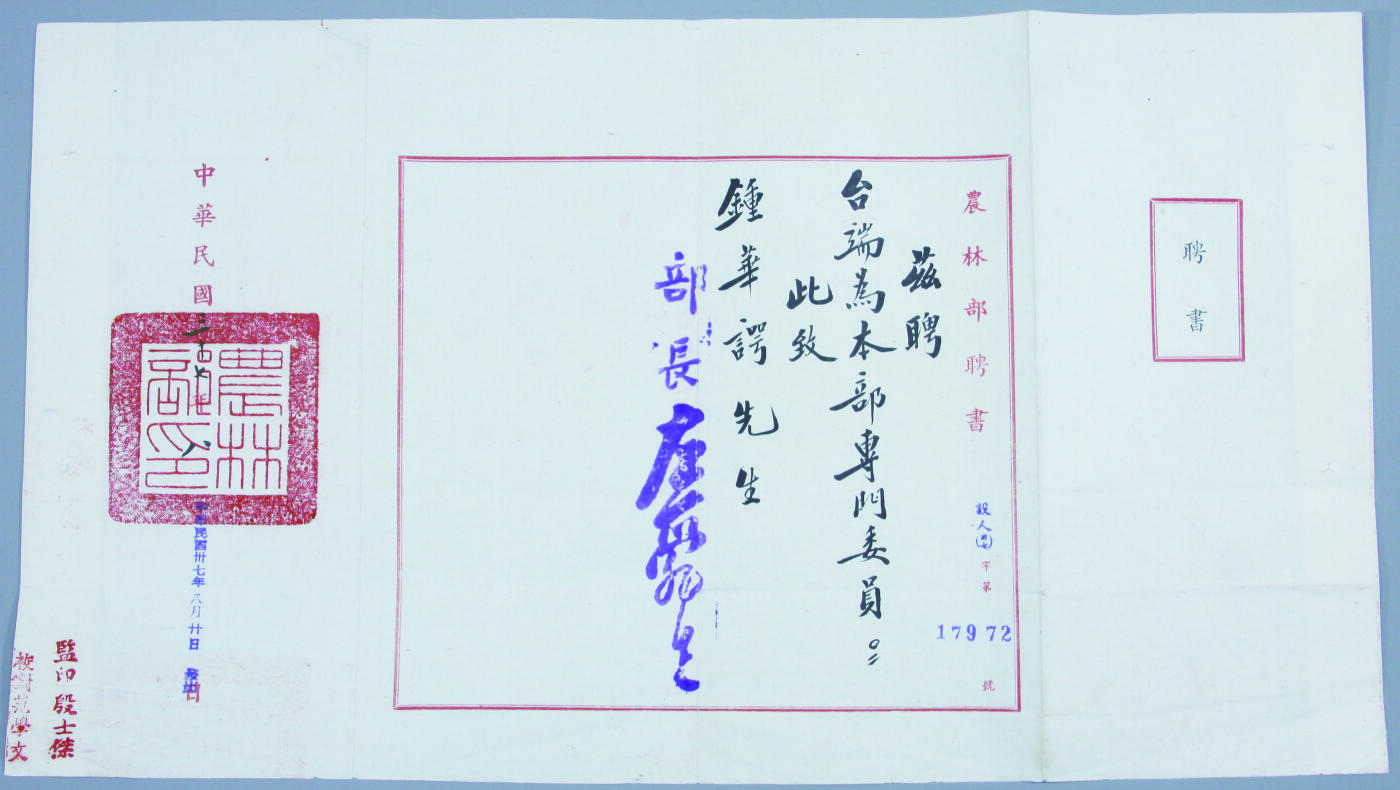 聘書
農林部聘書
字第
17972
號
茲聘
台端為本部專門委員。
此致
鍾華諤先生
部長左舜生
中華民國三十七年八
日
農林部印
中華民國卅七年八月廿日
監印殷士傑
校對范學文